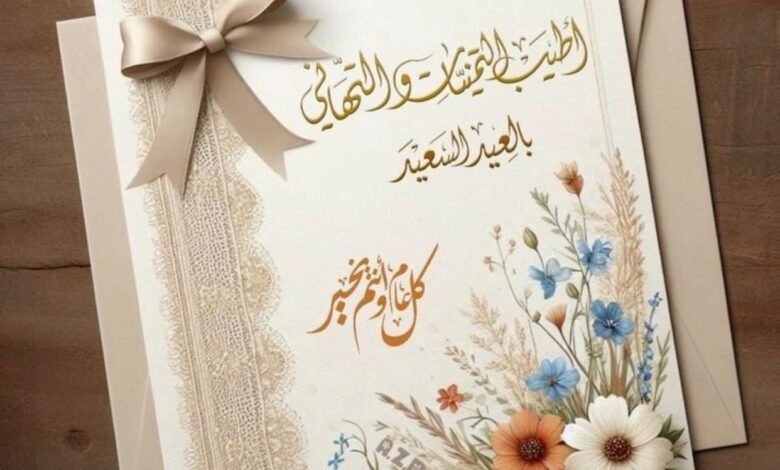 أطيب التمنيات والتهاني
بالعيد السعيد
كل عام وأنتم بخير